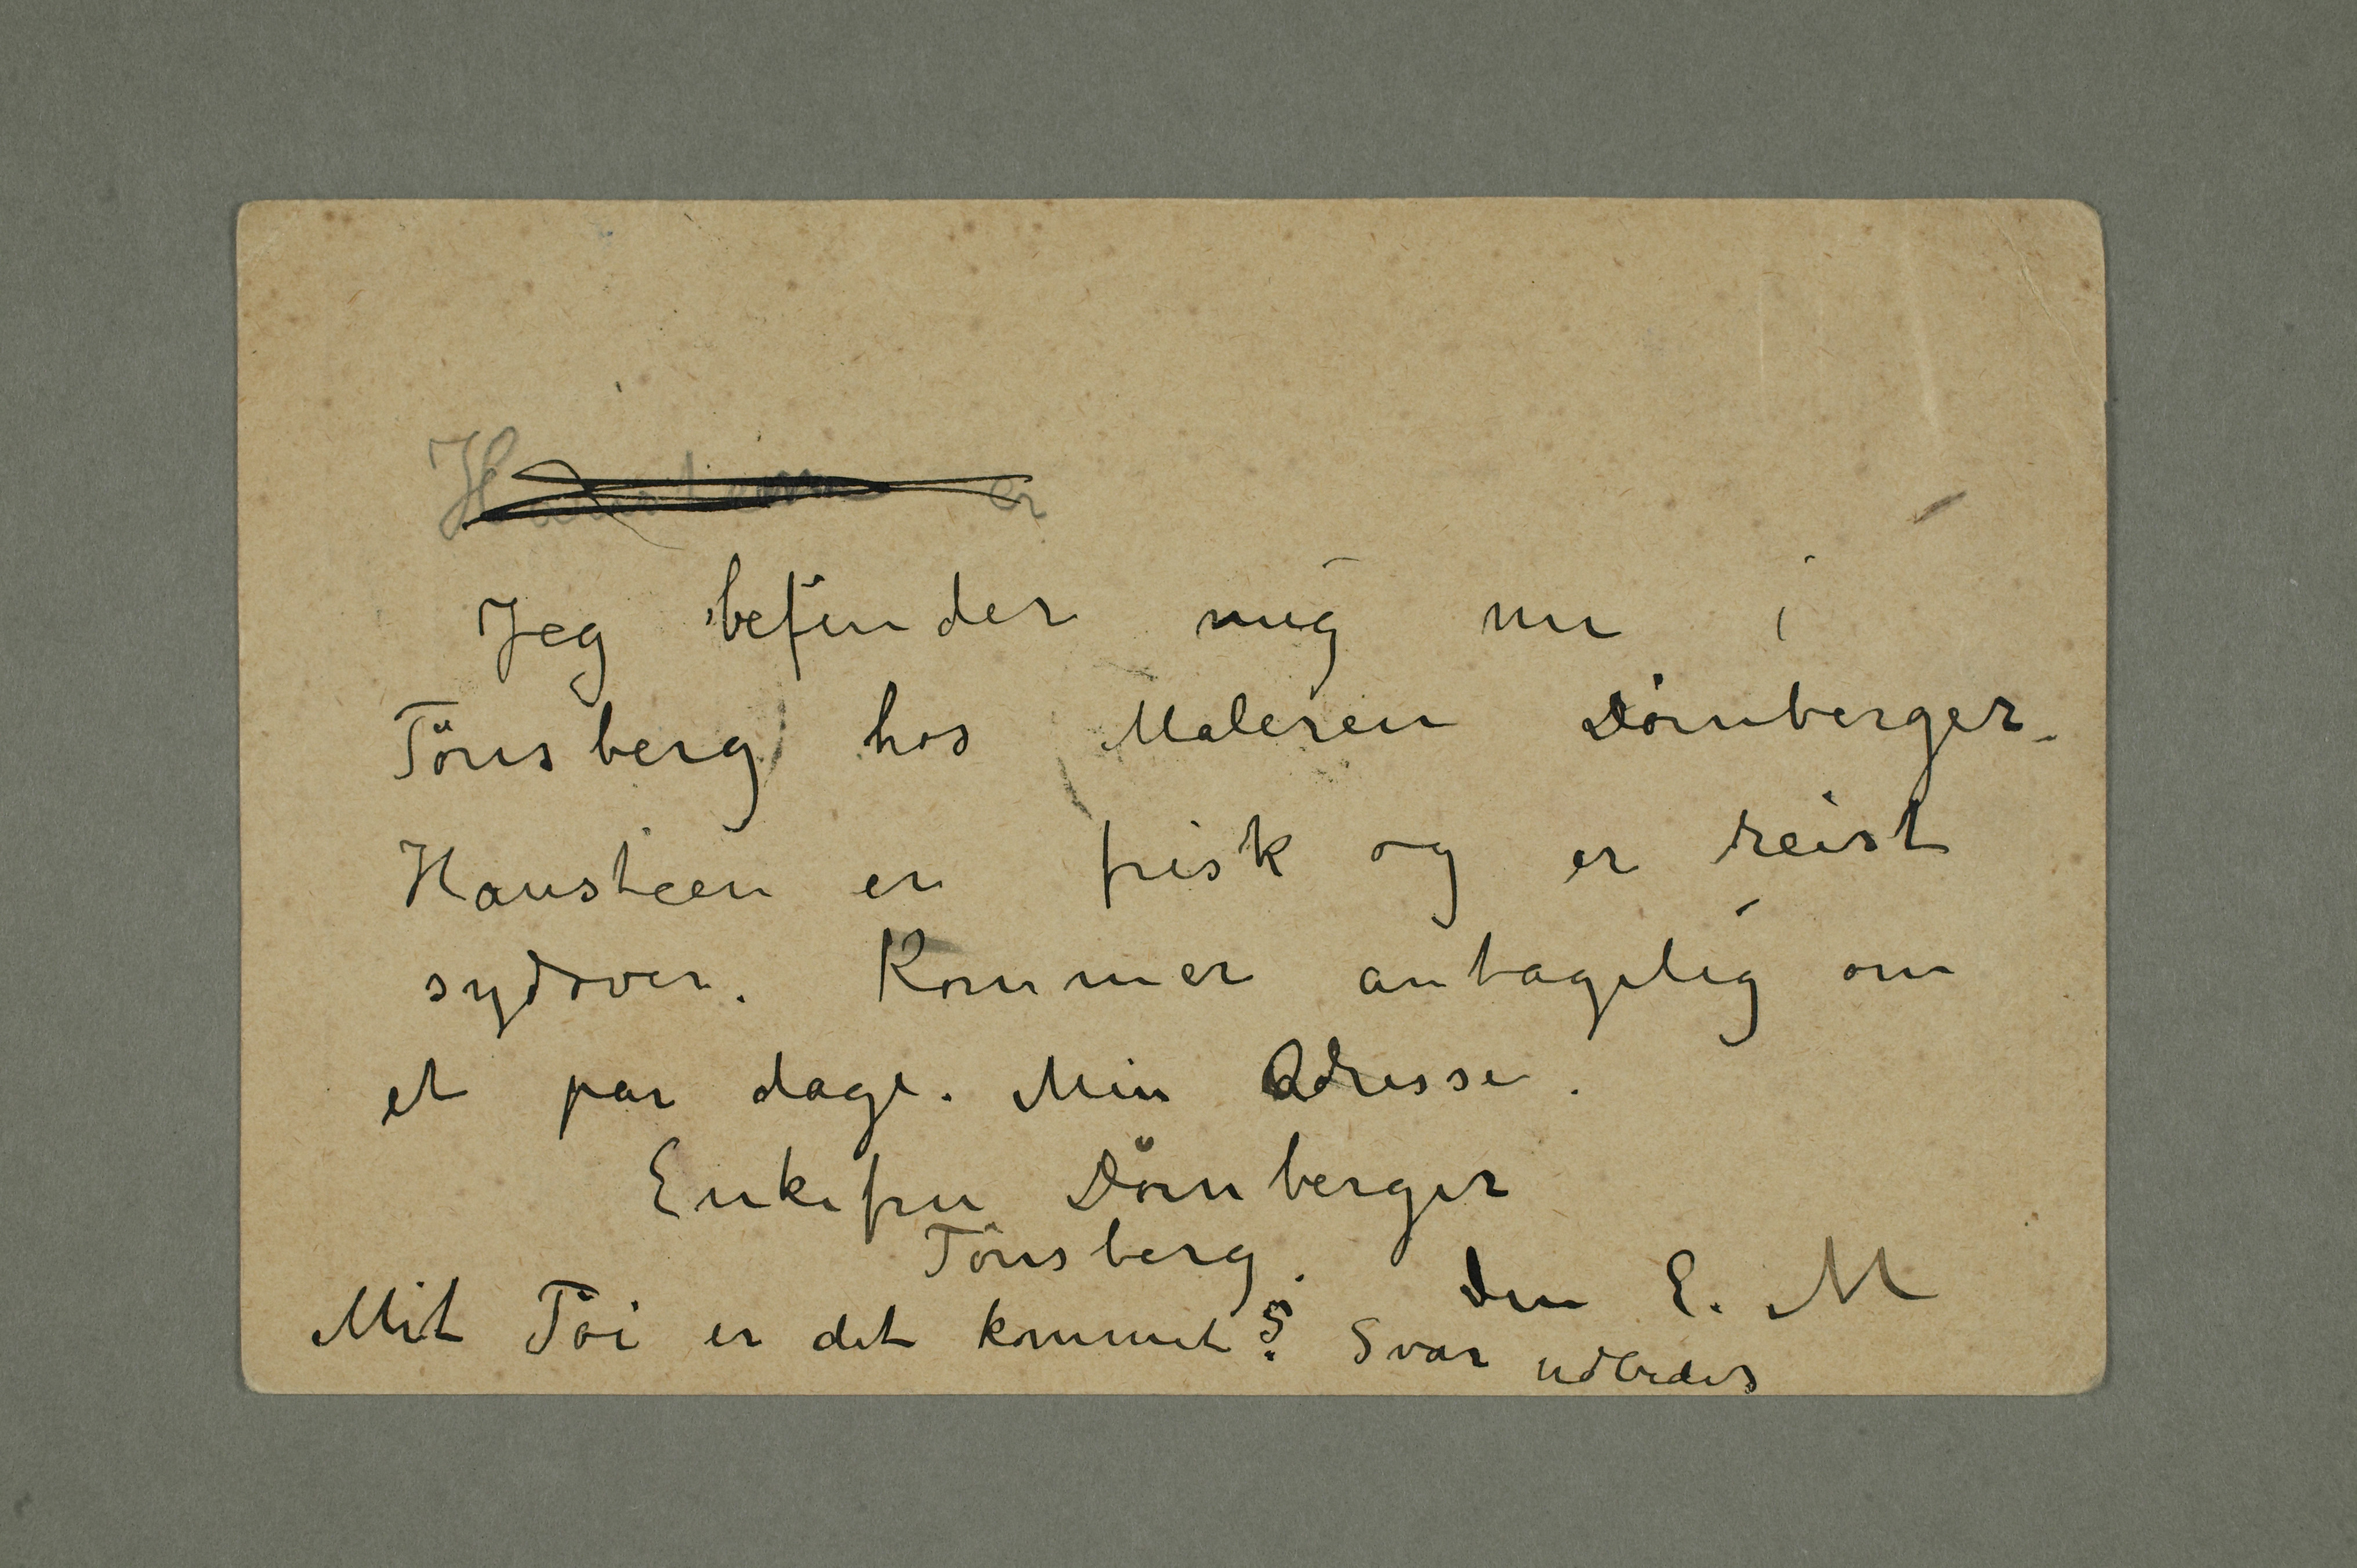 Hausteen er
Jeg befinder mig nu i
Tönsberg hos Maleren Dörnberger.
Hausteen er frisk og er reist
sydover. Kommer antagelig om
et par dage. Min Adresse.
Enkefru Dörnberger
Tönsberg.
Din E. M
Mit Töi er det kommet? Svar udbedes